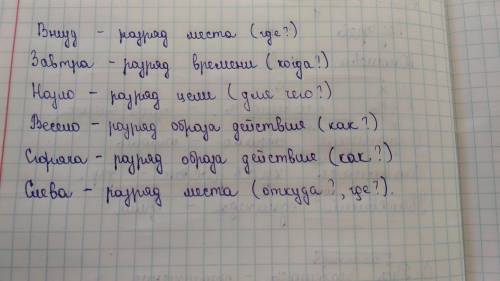 Внизу - разряд места (где?)
Завтра - разряд времени (когда?)
Назло - разряд цели (для чего?)
Весело - разряд образа действия (как?)
Сгоряча - разряд образа действия (как?)
Слева - разряд места (откуда?, где?).